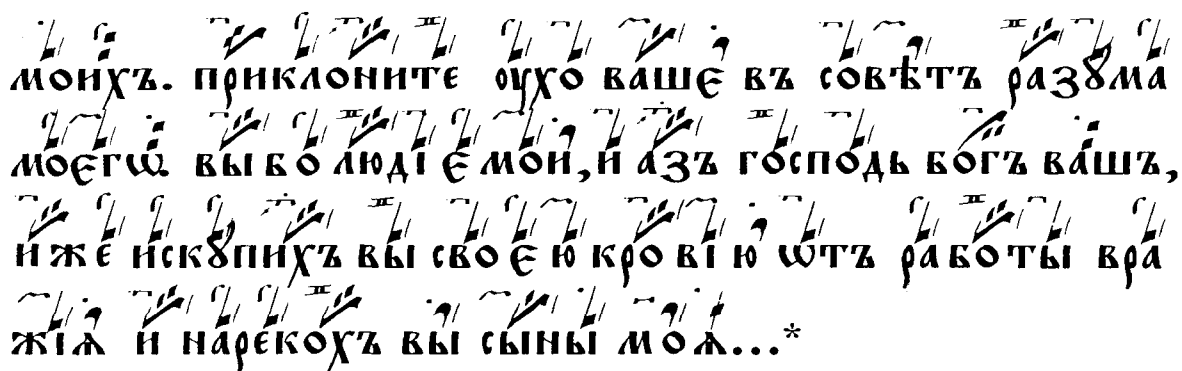 мои́хъ. приклони́те ᲂу҆́хо ва́ше въ совѣ́тъ ра́зꙋма
моегѡ̀ вы бо лю́діе мои̑, и҆ а҆́зъ госпо́дь бо́гъ ва́шъ,
и҆́же и҆скꙋпи́хъ вы свое́ю кро́вію ѿтъ рабо́ты вра
жїѧ и҆ нареко́хъ вы сыны̀ моѧ̑...*